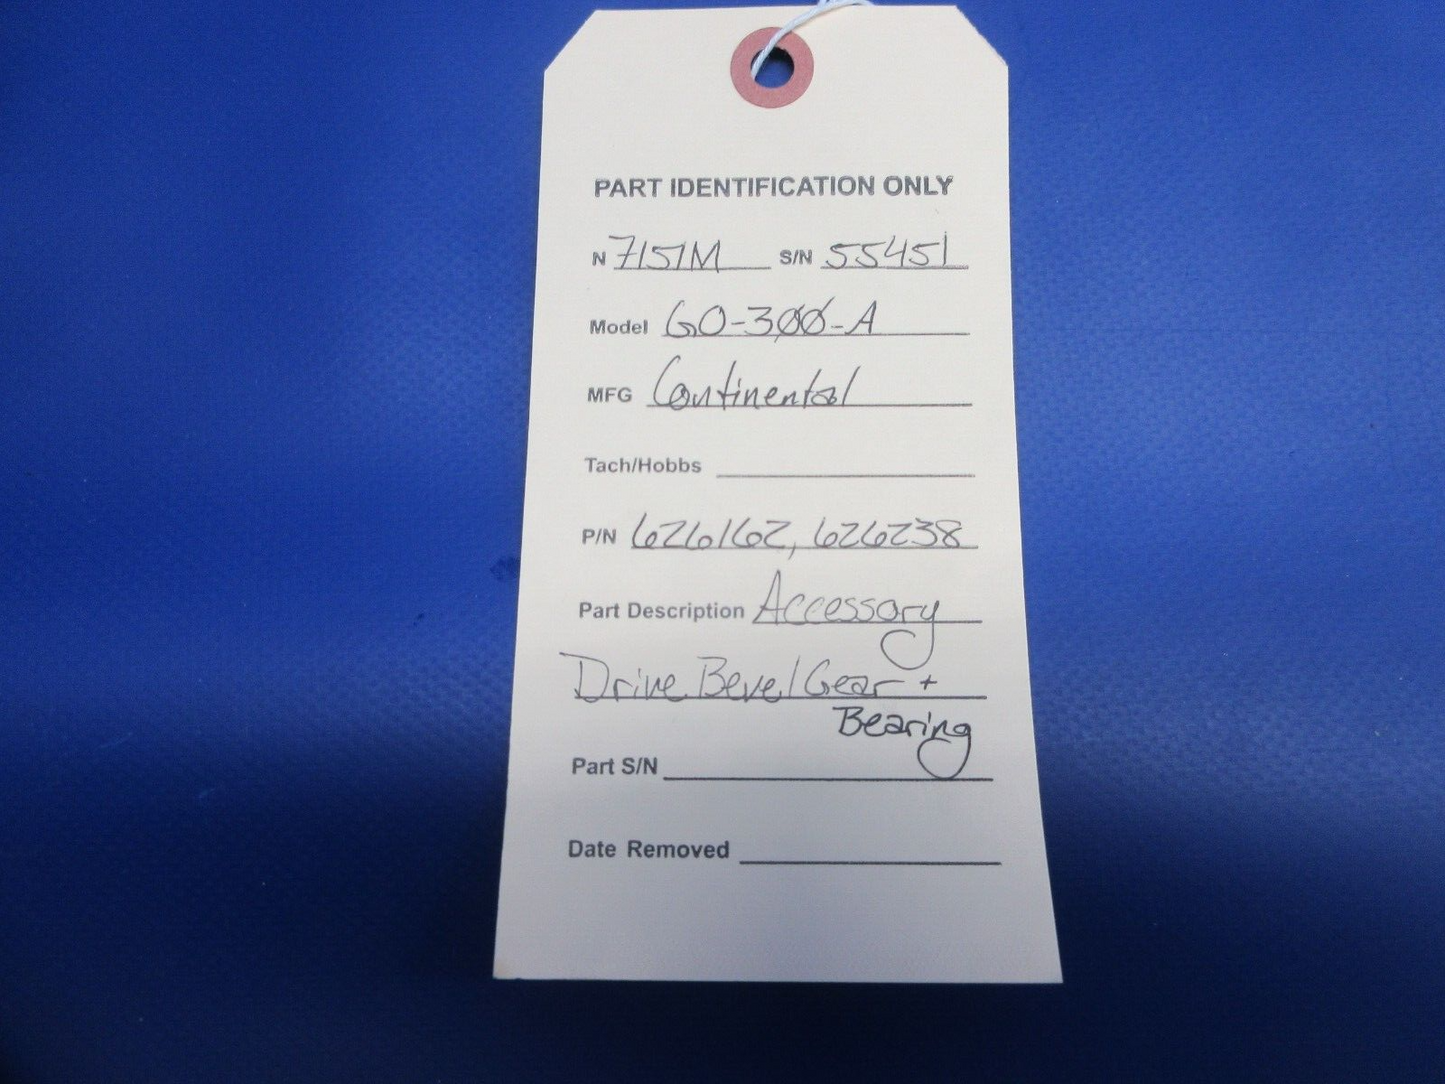 PART IDENTIFICATION ONLY
N 7151M S/N 55451
Model GO-300-A
MFG Continental
Tach/Hobbs
P/N 626162, 626238
Part Description Accessory
Drive Bevel Gear +
Bearing
Part S/N
Date Removed